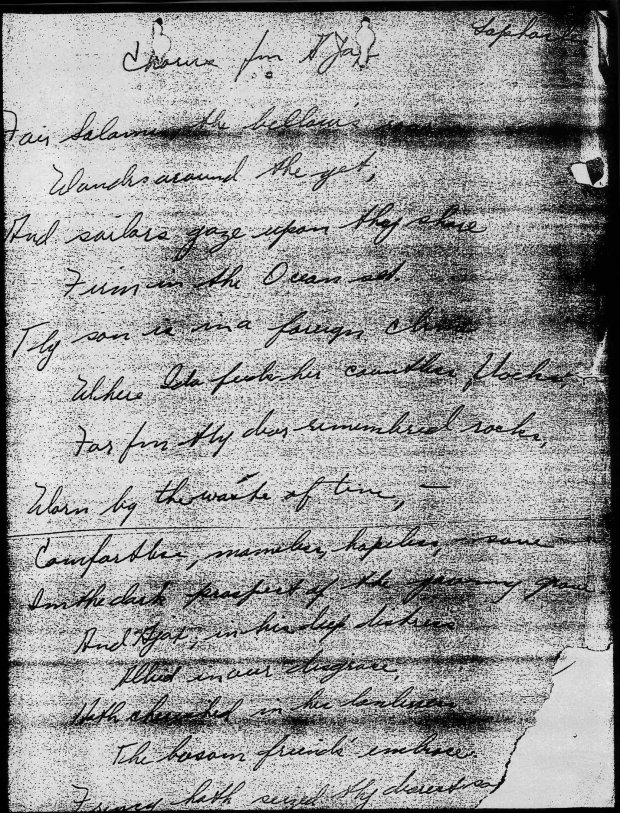 Chorus fm Ajax
Fair Salamis the billow's roar
Wanders around the yet,
And sailors gaze upon thy shore
Firm in the Ocean set.
Thy son is in a foreign clime
Where Ida feeds her countless flocks,
Far fm thy dear remembered rocks,
Worn by the waste of time, —
Comfortless, nameless, hopeless, — save
In the dark prospect of the yawning grave
And Ajax, in his deep distress
Allied in our disgrace,
Hath cherished in his loneliness
The bosom friends' embrace.
Frenzy hath seized thy dearest son